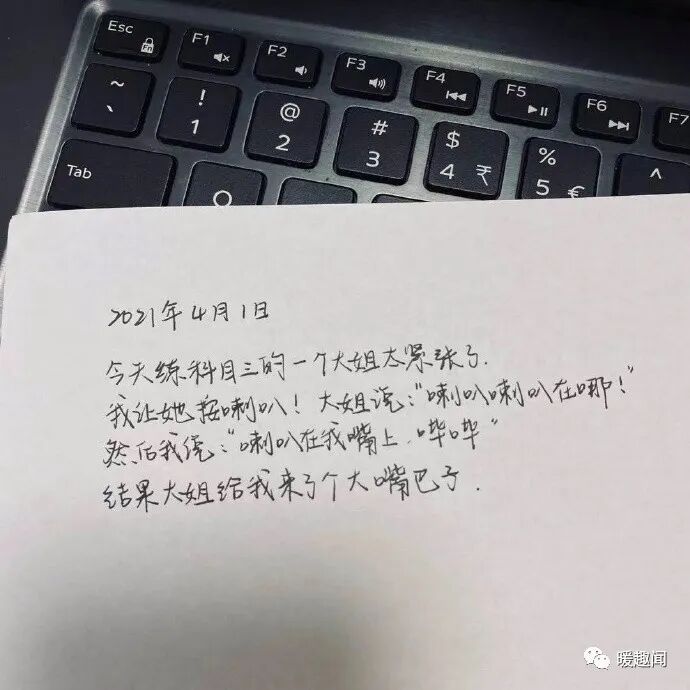 Esc Fn F1 F2 F3 F4 F5 F6 F7
~ ` ! 1 @ 2 # 3 $ 4 ₹ % 5 € ^
Tab
2021年4月1日
今天练科目三的一个大姐太紧张了.
我让她按喇叭！大姐说：“喇叭喇叭在哪！”
然后我说：“喇叭在我嘴上.哔哔”
结果大姐给我来了个大嘴巴子.
暖趣闻